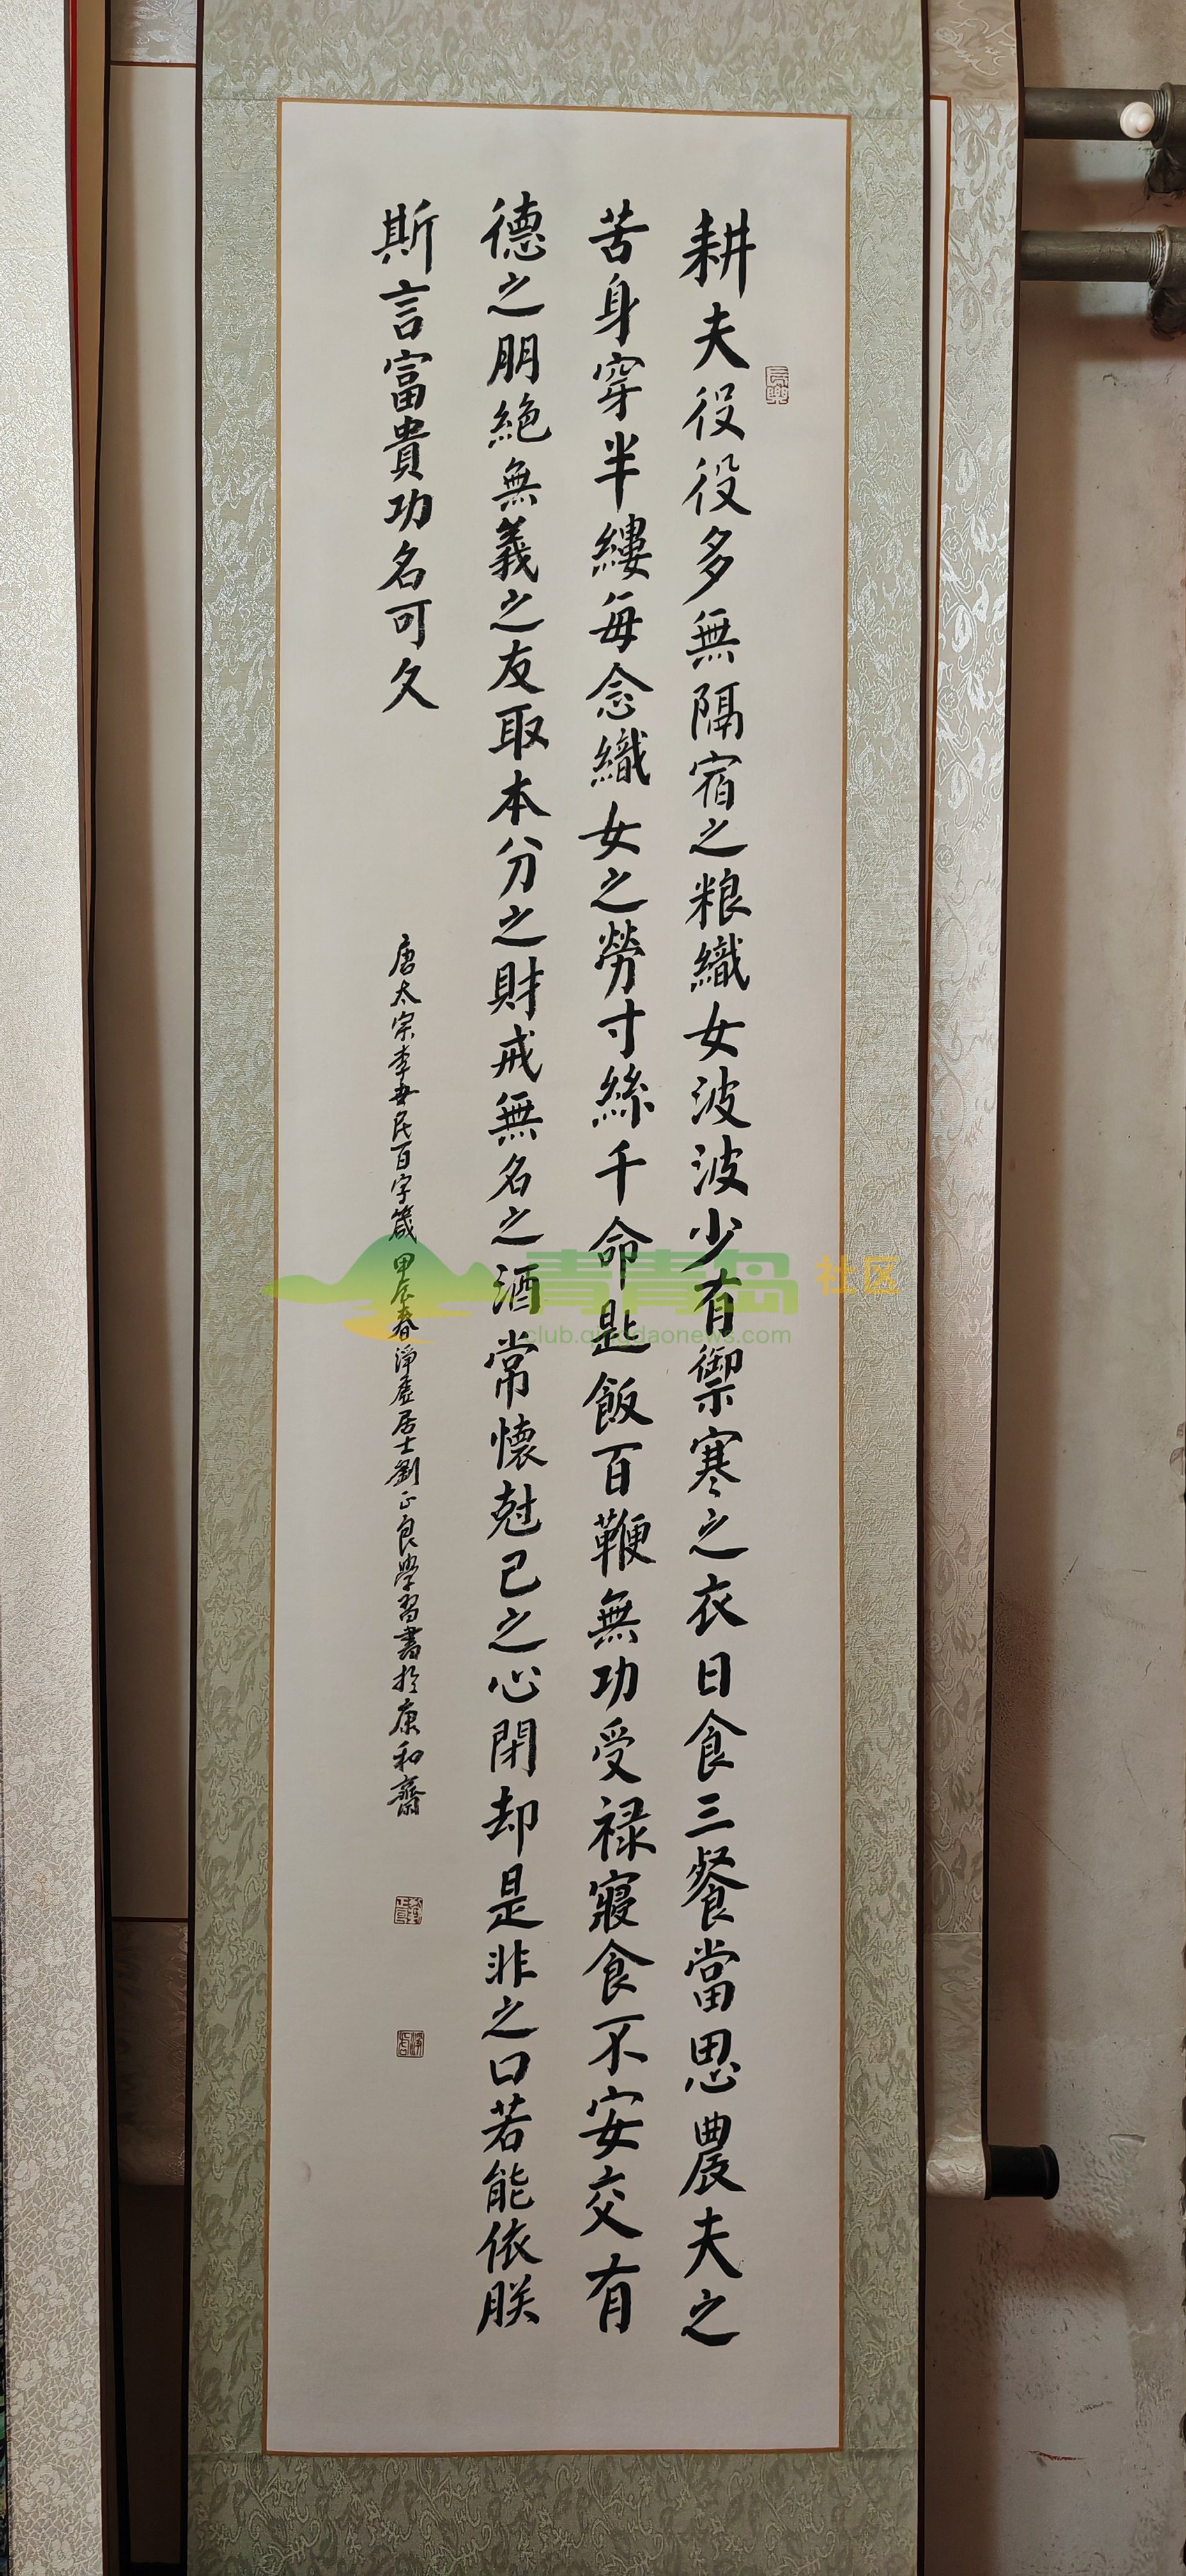 耕夫役役多無隔宿之粮織女波波少有禦寒之衣日食三餐當思農夫之
苦身穿半縷每念織女之勞寸絲千命匙飯百鞭無功受禄寢食不安交有
德之朋絕無義之友取本分之財戒無名之酒常懷尅己之心閉却是非之口若能依朕
斯言富貴功名可久
唐太宗李世民百字箴 甲辰春淨虛居士劉正良學習書於康和齋
青青岛 社区
club.qingdaonews.com